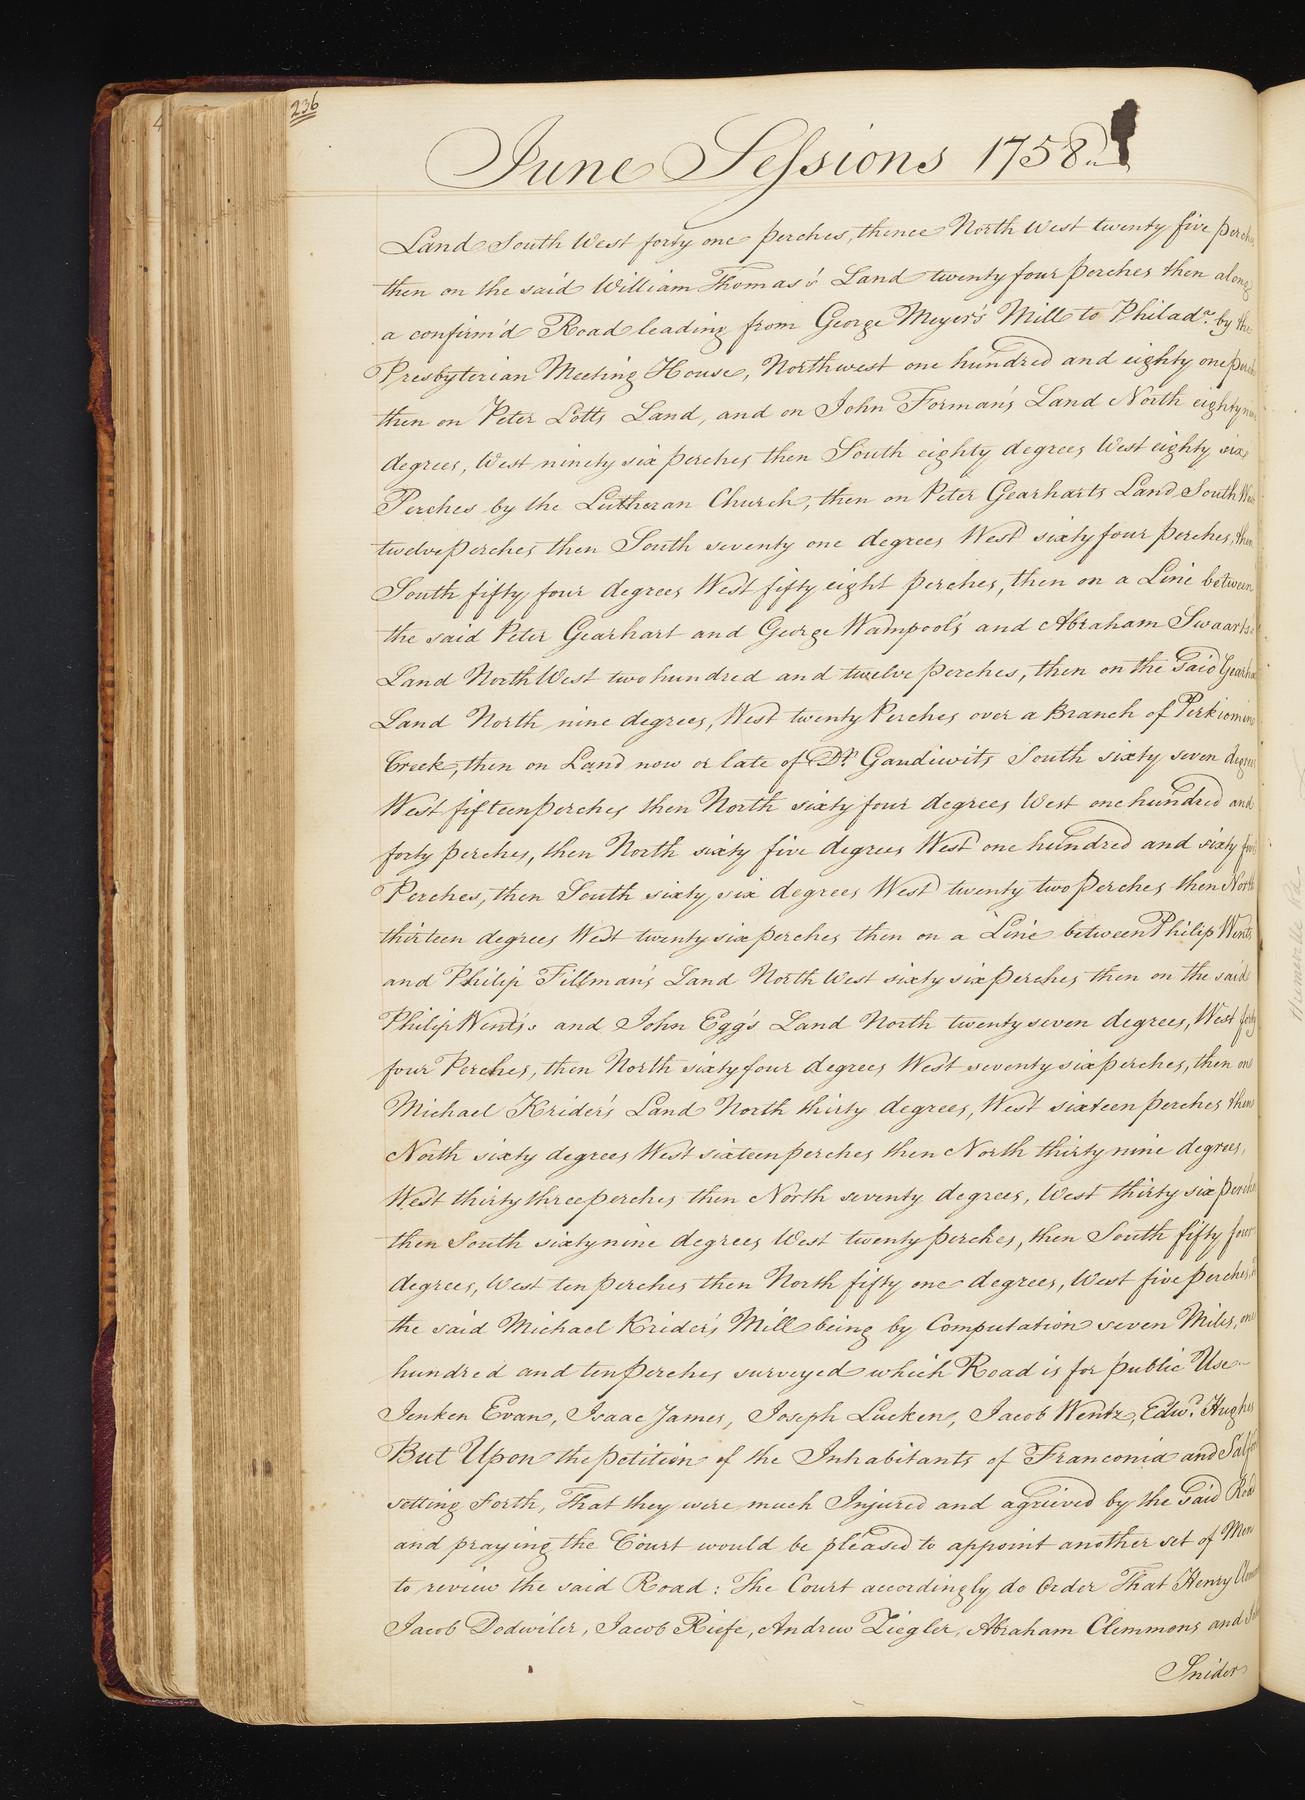 236
June Sessions 1758
Land South West forty one perches, thence North West twenty five
then on the said William Thomas's Land twenty four perches then along
a confirm'd Road leading from George Meyer's Mill to Philada. by the
Presbyterian Meeting House, Northwest one hundred and eighty one
then on Peter Lotts Land, and on John Forman's Land North
degrees, West ninety six perches then South eighty degrees West eighty six
Perches by the Lutheran Church, then on Peter Gearharts Land South
twelve perches then South seventy one degrees West sixty four perches, then
South fifty four degrees West fifty eight perches, then on a Line between
the said Peter Gearhart and George Wampool's and Abraham
Land North West two hundred and twelve perches, then on the said
Land North nine degrees, West twenty Perches over a Branch of
Creek, then on Land now or late of Dr. Gaudiwits South sixty seven
West fifteen perches then North sixty four degrees West one hundred and
forty perches, then North sixty five degrees West one hundred and sixty
Perches, then South sixty six degrees West twenty two perches then North
thirteen degrees West twenty six perches then on a Line between Philip
and Philip Fillman's Land North West sixty six perches then on the said
Philip Wents's and John Egg's Land North twenty seven degrees, West
four Perches, then North sixty four degrees West seventy six perches, then on
Michael Krider's Land North thirty degrees, West sixteen perches then
North sixty degrees West sixteen perches then North thirty nine degrees,
West thirty three perches then North seventy degrees, West thirty six
then South sixty nine degrees West twenty perches, then South fifty four
degrees, West ten perches then North fifty one degrees, West five perches,
the said Michael Krider's Mill being by Computation seven Miles, one
hundred and ten perches surveyed which Road is for public Use
Jenken Evan, Isaac James, Joseph Lucken, Jacob Wentz, Edwd. Hughes
But Upon the petition of the Inhabitants of Franconia and
setting forth, That they were much Injured and agrieved by the said
and praying the Court would be pleased to appoint another set of Men
to review the said Road: The Court accordingly do Order That Henry
Jacob Dodwiler, Jacob Riefe, Andrew Ziegler, Abraham Clemmons and
Snider